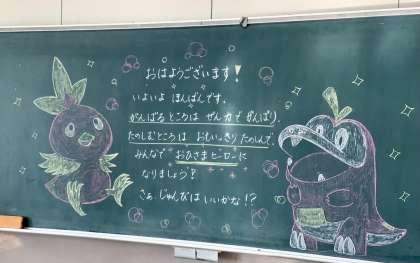 おはようございます!
いよいよ ほんばんです。
がんばる ところは ぜん力で がんばり、
たのしむところは おもいっきり たのしんで、
みんなで おひさまヒーローに
なりましょう?
さぁ、じゅんびは いいかな!?